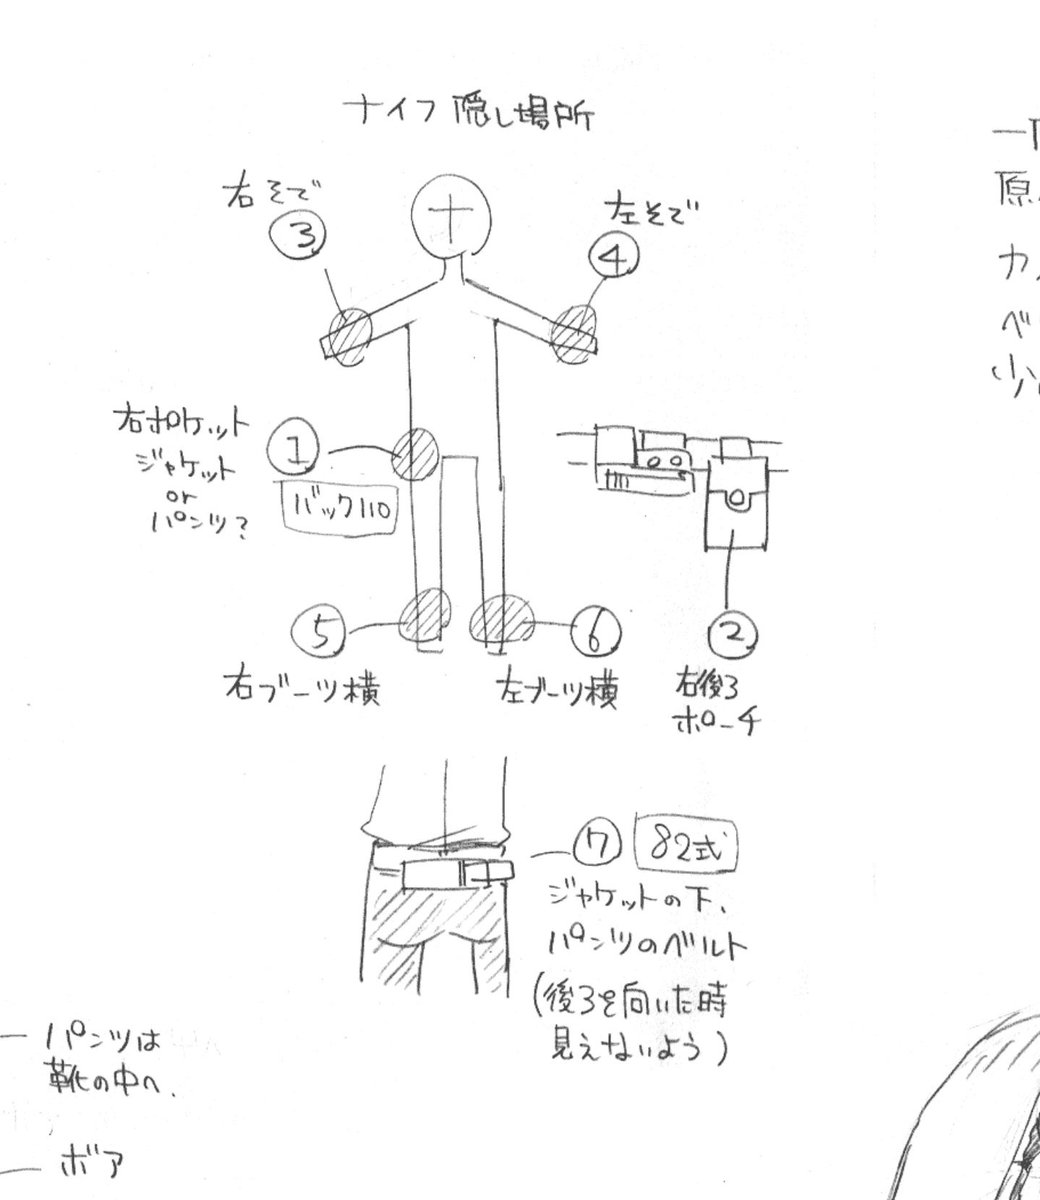 ナイフ隠し場所
右そで
③
左そで
④
右ポケット
ジャケット
or
パンツ?
①
バック110
⑤
右ブーツ横
⑥
左ブーツ横
②
右後ろ
ポーチ
⑦
82式
ジャケットの下、
パンツのベルト
(後ろを向いた時
見えないよう)
パンツは
靴の中へ.
ボア
原
カ
ベ
少